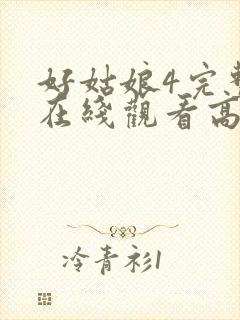 好姑娘4完整
在綫觀看高
冷青衫1